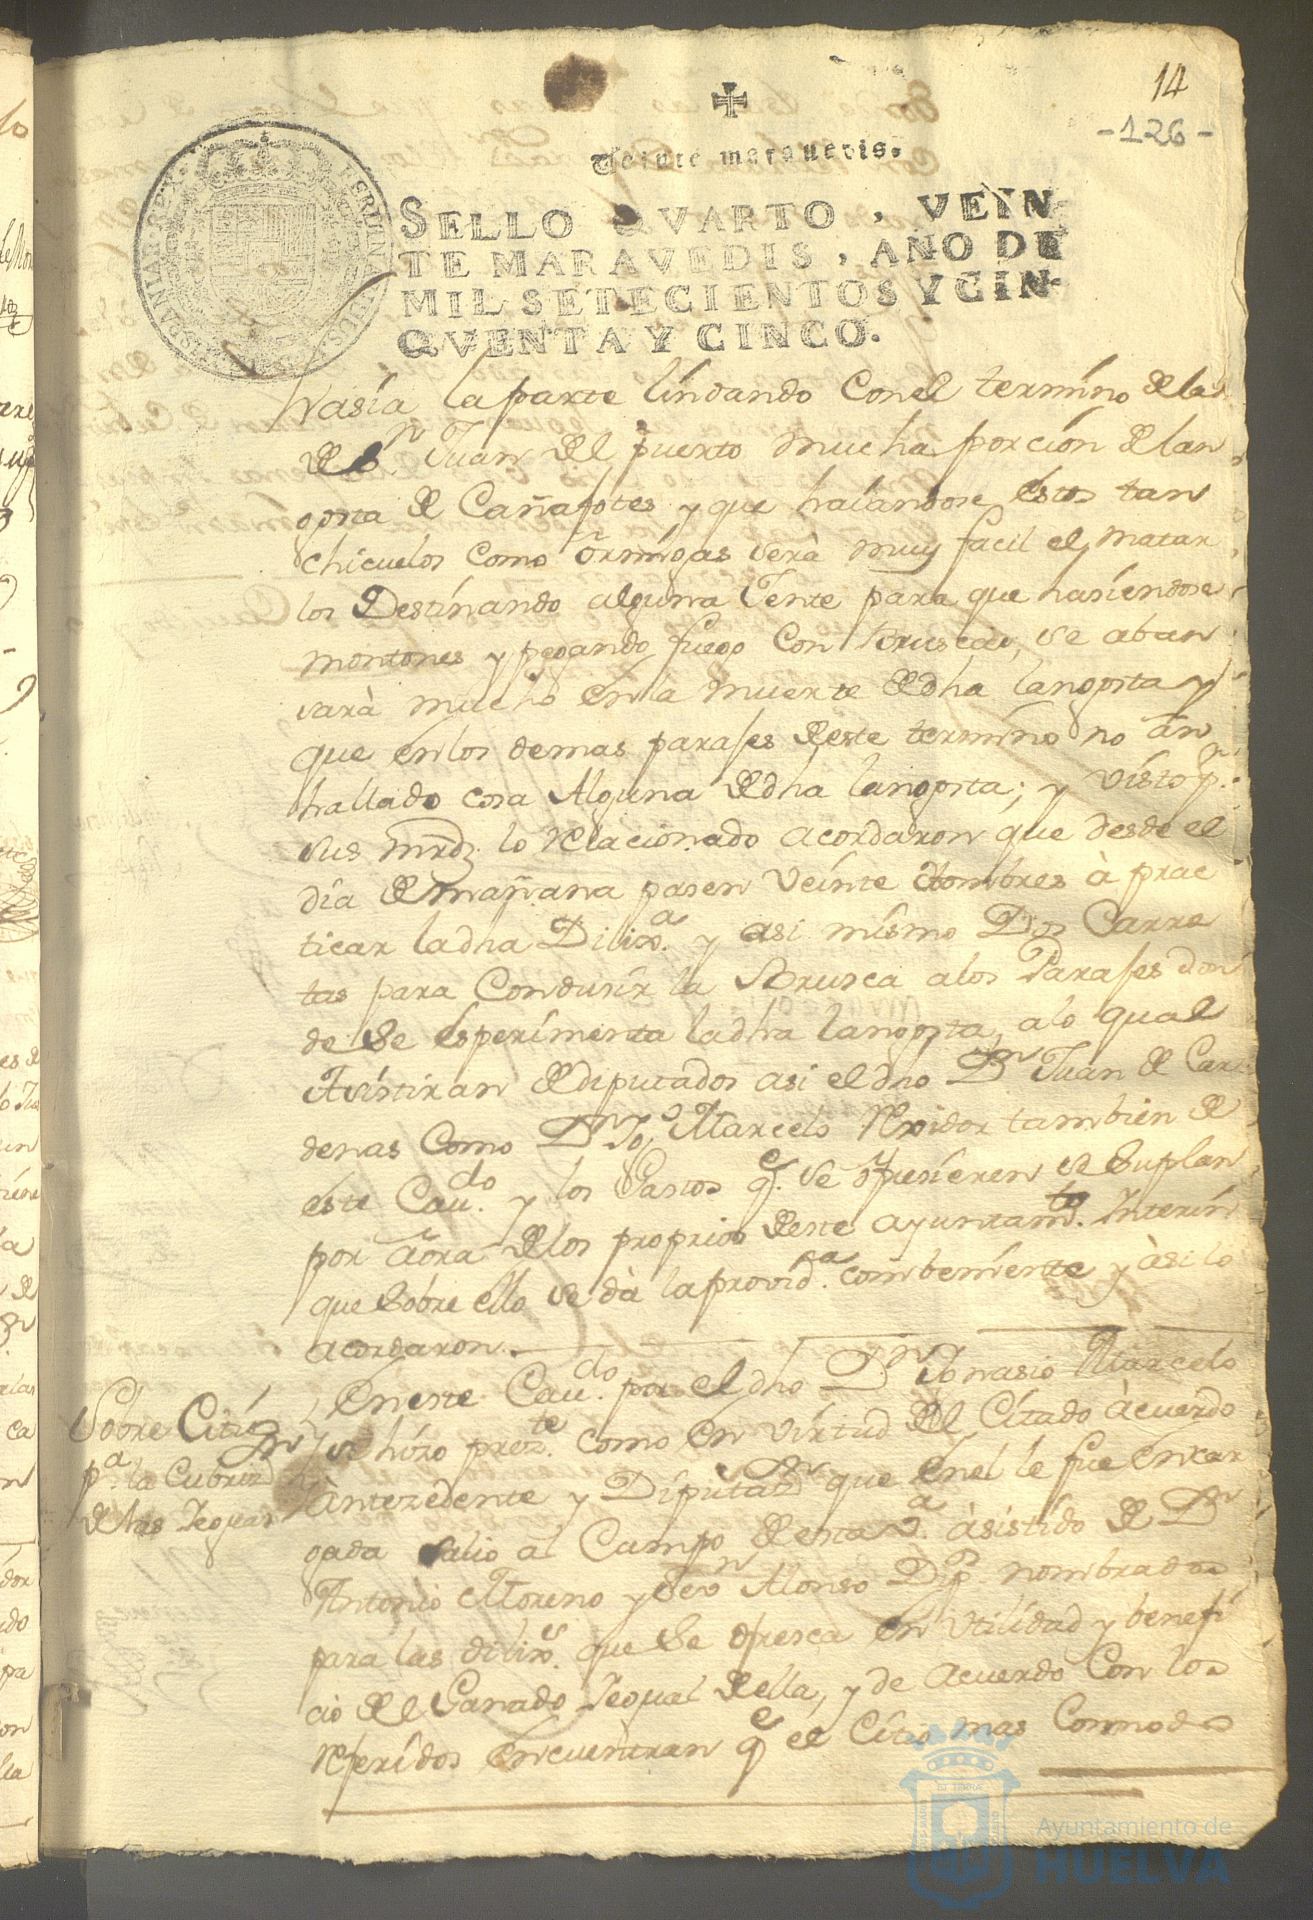 14
-126-
Veinte maravedis.
SELLO QVARTO, VEYN
TE MARAVEDIS, AÑO DE
MIL SETECIENTOS Y CIN
QVENTA Y CINCO.
hasía la parte líndando con el termíno de la
de Sn. Juan del puerto mucha porcíon de lan
gosta de Cañafotes y que halandose estos tan
chicuelos como ormígas será muy facil el matar
los Destínando alguna Jente para que hasíendose
montones y pegando fuego con brusca, se aban
sará mucho en la muerte de dha langosta y
que en los demas parajes deste termíno no àn
hallado cosa Alguna de dha langosta; y vísto pr.
sus mrds. lo Relacionado acordaron que desde el
día de mañana pasen veínte Hombres à prac
ticar la dha Dilixa. y asi mísmo Dos Carre
tas para Condusír la Brusca a los Parajes don
de se esperímenta la dha langosta, a lo qual
Asístiran de diputados asi el dho Dn Juan de Car
denas como Dn Jo. Marcelo Rexidor tambien de
este Cavdo. y los Gastos qe. se ofresíeren se suplan
por aora de los proprios deste ayuntamto. Interín
que sobre ello se dà la provida. combeníente y àsi lo
acordaron.
Sobre Citío
pa. la Cubrizn
de las Yeguas
En este Cavdo. por el dho Dn Ygnasio Marcelo
se hízo prezte. como en vírtud del Cítado àcuerdo
àntezedente y Díputazn que en el le fue encar
gada salio al Campo de esta Va. àsistído de Dn
Antonio Moreno y Sevn Alonso Dipp. nombrados
para las dilixs. que se ofresca en vtilídad y benefí
cio del Ganado Yegual della, y de acuerdo con los
Referídos encuentran qe el Cítio mas Commodo
Ayuntamiento de
HUELVA